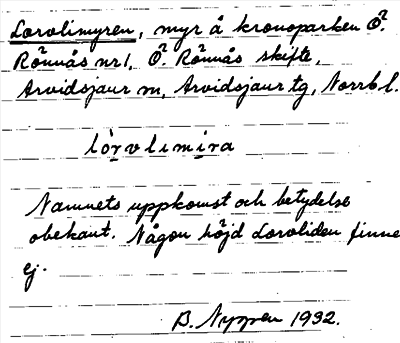 Lorvlimyren, myr å kronoparken Ö.
Rönnås nr 1, Ö. Rönnås skifte,
Arvidsjaur sn, Arvidsjaur tg, Norrb l.
lòrvlimi̬ra
Namnets uppkomst och betydelse
obekant. Någon höjd Lorvliden finnes
ej.
B. Nyppen 1932.